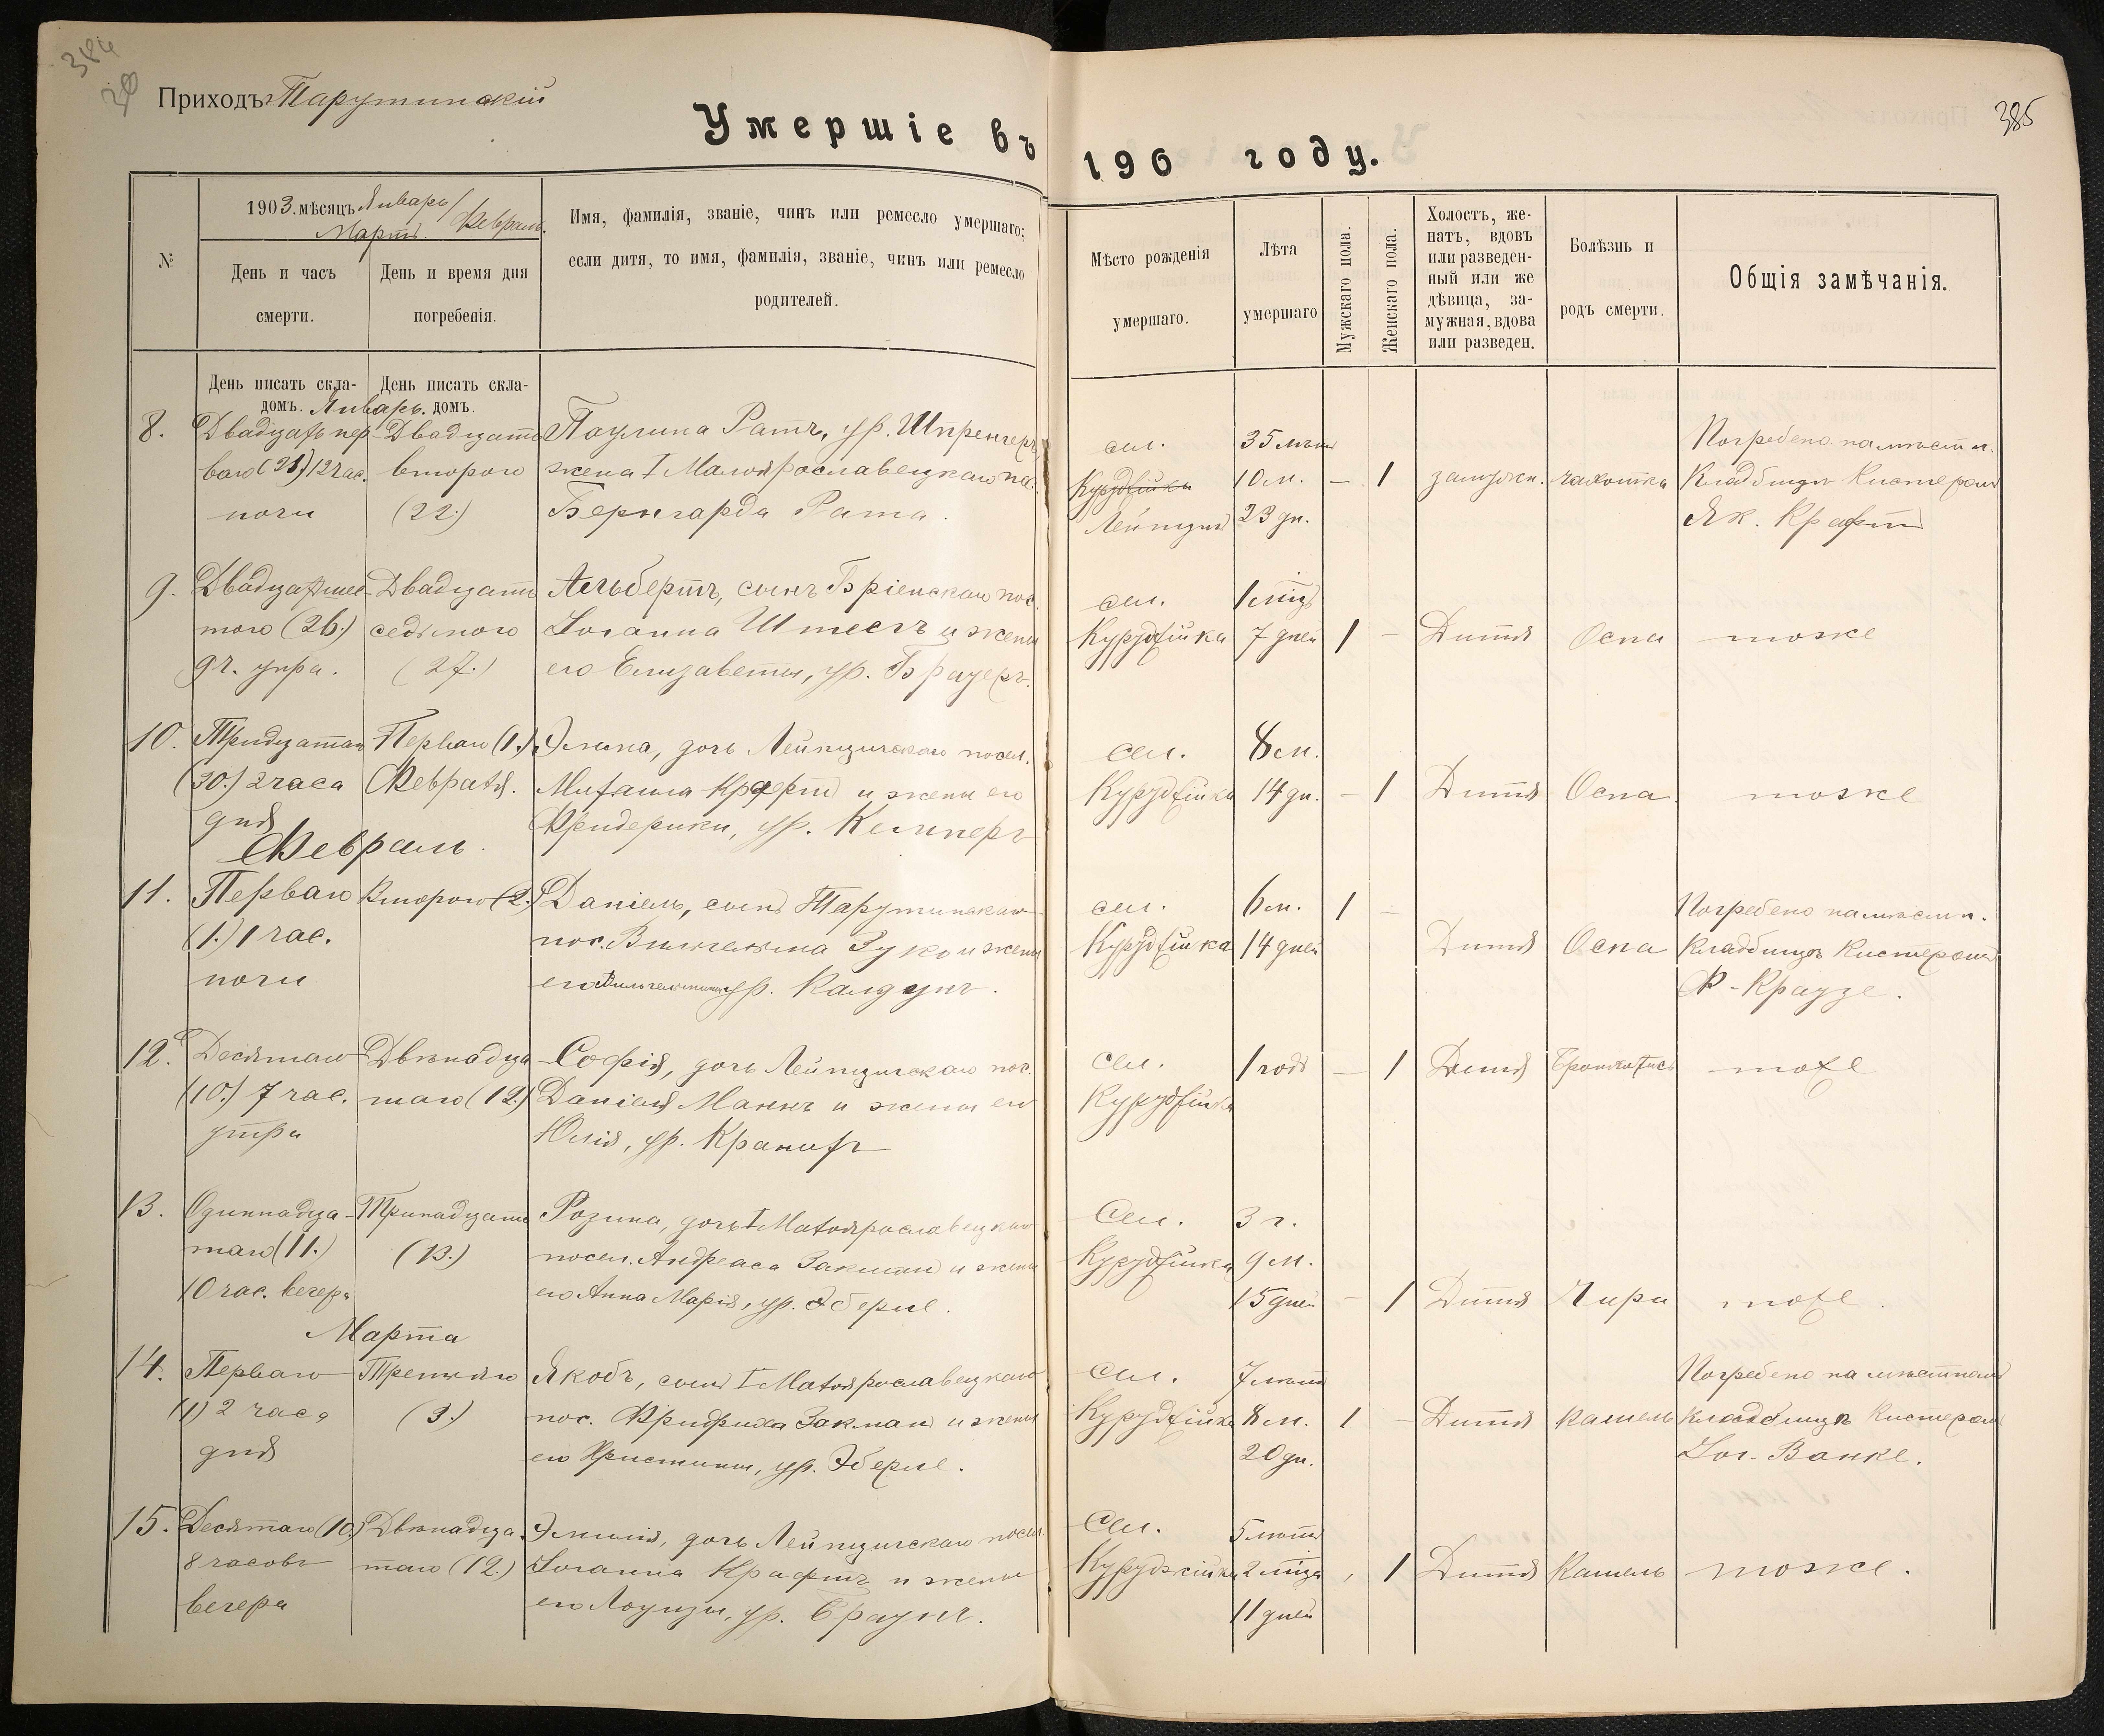 384
20
Приходъ Тарутинскій
385
Умершіе въ 190 году.
№
1903. мѣсяцъ Январь/
Февраль.
Мартъ.
День и часъ
смерти.
День и время дня
погребенія.
Имя, фамилія, званіе, чинъ или ремесло умершаго;
если дитя, то имя, фамилія, званіе, чинъ или ремесло
родителей.
Мѣсто рожденія
умершаго.
Лѣта
умершаго
Мужскаго пола.
Женскаго пола.
Холостъ, же-
натъ, вдовъ
или разведен-
ный или же
дѣвица, за-
мужная, вдова
или разведен.
Болѣзнь и
родъ смерти.
Общія замѣчанія.
День писать скла-
домъ.
День писать скла-
домъ.
Январь.
8.
Двадцать пер-
ваго (21.) 12 час.
ночи
Двадцать
второго
(22.)
Паулина Ратъ, ур. Шпренгеръ,
жена I Малоярославецкаго по.
Бернгарда Рата.
сел.
Курудшійка
Лейпцигъ
35 лѣтъ
10 м.
23 дн.
—
1
замужн.
чахотка
Погребено на мѣстн.
Кладбищѣ Кистеромъ
Як. Крафтъ
9.
Двадцать шес-
того (26.)
9 ч. утра.
Двадцать
седьмого
(27.)
Альбертъ, сынъ Бріенскаго пос.
Іоганна Штегъ и жены
его Елизаветы, ур. Брауеръ.
сел.
Курудшійка
1 мѣц.
7 дней
1
—
Дитя
Оспа
тоже
10.
Тридцатаго
(30.) 2 часа
дня
Перваго (1.)
Февраля.
Эльма, дочь Лейпцигскаго посел.
Михаила Крафтъ и жены его
Фридерики, ур. Кемперъ
сел.
Курудшійка
8 м.
14 дн.
—
1
Дитя
Оспа.
тоже
Февраль.
11.
Перваго
(1.) 1 час.
ночи
Второго (2.)
Даніель, сынъ Тарутинскаго
пос. Вильгельма Зукко и жены
его Вильгельмины ур. Калдунъ.
сел.
Курудшійка
6 м.
14 дней
1
—
Дитя
Оспа
Погребено на мѣстн.
Кладбищѣ Кистеромъ
Ф. Краузе.
12.
Десятаго
(10.) 7 час.
утра
Двѣнадца-
таго (12.)
Софія, дочь Лейпцигскаго пос.
Даніеля Маннъ и жены его
Юлія, ур. Кранихъ
сел.
Курудшійка
1 годъ
—
1
Дитя
Бронхитисъ
тоже
13.
Одиннадца-
таго (11.)
10 час. вечера
Тринадцать
(13.)
Розина, дочь I Малоярославецкаго
посел. Андреаса Закманъ и жены
его Анна Марія, ур. Эберле.
Сел.
Курудшійка
3 г.
9 м.
15 дней
—
1
Дитя
Чири
тоже.
Марта
14.
Перваго
(1) 2 часа
дня
Третьяго
(3.)
Якобъ, сынъ I Малоярославецкаго
пос. Фридриха Закманъ и жены
его Христины, ур. Эберле.
сел.
Курудшійка
7 лѣтъ
8 м.
20 дн.
1
—
Дитя
Кашель
Погребено на мѣстномъ
кладбищѣ Кистеромъ
Іог. Ванке.
15.
Десятаго (10)
8 часовъ
вечера
Двѣнадца-
таго (12.)
Эмилія, дочь Лейпцигскаго посел.
Іоганна Крафтъ и жены
его Лоуизы, ур. Браунъ.
Сел.
Куруджійка
5 лѣтъ
2 мѣца
11 дней
1
Дитя
Кашель
тоже.